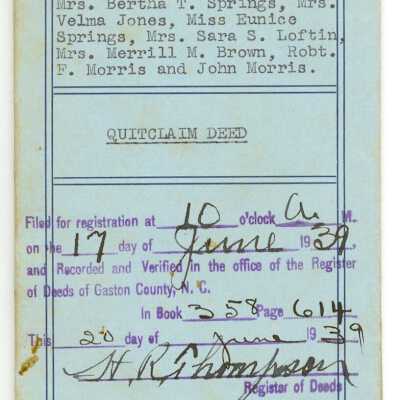 Mrs. Bertha T. Springs, Mrs.
Velma Jones, Miss Eunice
Springs, Mrs. Sara S. Loftin,
Mrs. Merrill M. Brown, Robt.
F. Morris and John Morris.
QUITCLAIM DEED
Filed for registration at 10 o'clock A. M.
on the 17 day of June 1939,
and Recorded and Verified in the office of the Register
of Deeds of Gaston County, N. C.
In Book 358 Page 614
This 20 day of June 1939
H. R. Thompson
Register of Deeds